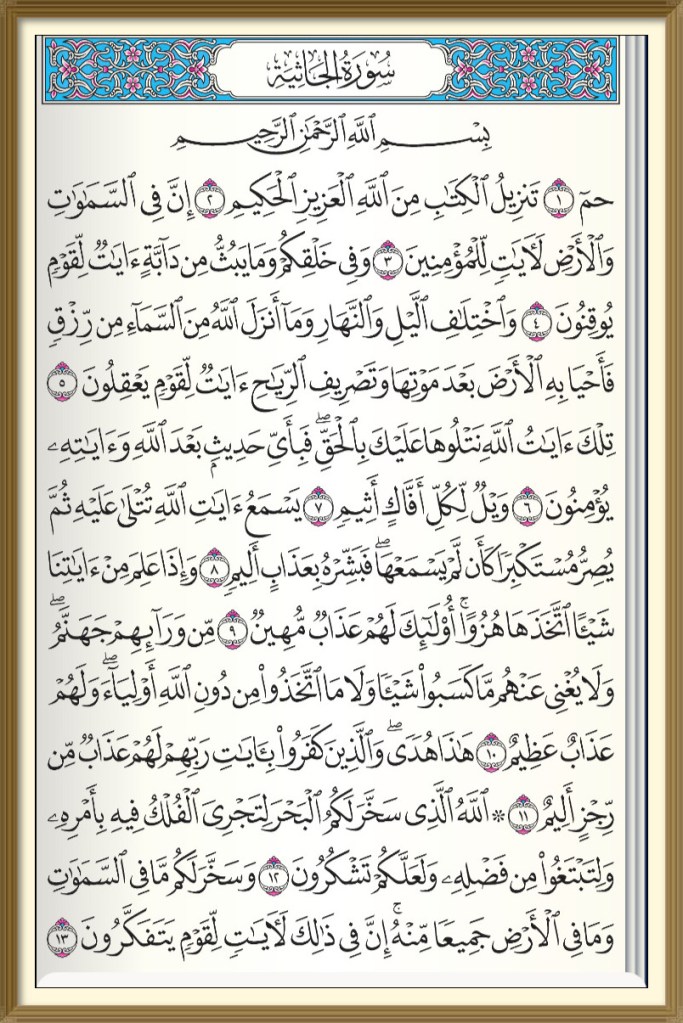 سُورَةُ الجَاثِيَةِ
بِسْمِ ٱللَّهِ ٱلرَّحْمَٰنِ ٱلرَّحِيمِ
حمٓ ١ تَنزِيلُ ٱلْكِتَٰبِ مِنَ ٱللَّهِ ٱلْعَزِيزِ ٱلْحَكِيمِ ٢ إِنَّ فِى ٱلسَّمَٰوَٰتِ
وَٱلْأَرْضِ لَءَايَٰتٍ لِّلْمُؤْمِنِينَ ٣ وَفِى خَلْقِكُمْ وَمَا يَبُثُّ مِن دَآبَّةٍ ءَايَٰتٌ لِّقَوْمٍ
يُوقِنُونَ ٤ وَٱخْتِلَٰفِ ٱلَّيْلِ وَٱلنَّهَارِ وَمَآ أَنزَلَ ٱللَّهُ مِنَ ٱلسَّمَآءِ مِن رِّزْقٍ
فَأَحْيَا بِهِ ٱلْأَرْضَ بَعْدَ مَوْتِهَا وَتَصْرِيفِ ٱلرِّيَٰحِ ءَايَٰتٌ لِّقَوْمٍ يَعْقِلُونَ ٥
تِلْكَ ءَايَٰتُ ٱللَّهِ نَتْلُوهَا عَلَيْكَ بِٱلْحَقِّۖ فَبِأَىِّ حَدِيثٍۭ بَعْدَ ٱللَّهِ وَءَايَٰتِهِۦ
يُؤْمِنُونَ ٦ وَيْلٌ لِّكُلِّ أَفَّاكٍ أَثِيمٍ ٧ يَسْمَعُ ءَايَٰتِ ٱللَّهِ تُتْلَىٰ عَلَيْهِ ثُمَّ
يُصِرُّ مُسْتَكْبِرًا كَأَن لَّمْ يَسْمَعْهَاۖ فَبَشِّرْهُ بِعَذَابٍ أَلِيمٍ ٨ وَإِذَا عَلِمَ مِنْ ءَايَٰتِنَا
شَيْـًٔا ٱتَّخَذَهَا هُزُوًاۚ أُو۟لَٰٓئِكَ لَهُمْ عَذَابٌ مُّهِينٌ ٩ مِّن وَرَآئِهِمْ جَهَنَّمُۖ
وَلَا يُغْنِى عَنْهُم مَّا كَسَبُوا۟ شَيْـًٔا وَلَا مَا ٱتَّخَذُوا۟ مِن دُونِ ٱللَّهِ أَوْلِيَآءَۖ وَلَهُمْ
عَذَابٌ عَظِيمٌ ١٠ هَٰذَا هُدًىۖ وَٱلَّذِينَ كَفَرُوا۟ بِـَٔايَٰتِ رَبِّهِمْ لَهُمْ عَذَابٌ مِّن
رِّجْزٍ أَلِيمٌ ١١ ۞ ٱللَّهُ ٱلَّذِى سَخَّرَ لَكُمُ ٱلْبَحْرَ لِتَجْرِىَ ٱلْفُلْكُ فِيهِ بِأَمْرِهِۦ
وَلِتَبْتَغُوا۟ مِن فَضْلِهِۦ وَلَعَلَّكُمْ تَشْكُرُونَ ١٢ وَسَخَّرَ لَكُم مَّا فِى ٱلسَّمَٰوَٰتِ
وَمَا فِى ٱلْأَرْضِ جَمِيعًا مِّنْهُۚ إِنَّ فِى ذَٰلِكَ لَءَايَٰتٍ لِّقَوْمٍ يَتَفَكَّرُونَ ١٣